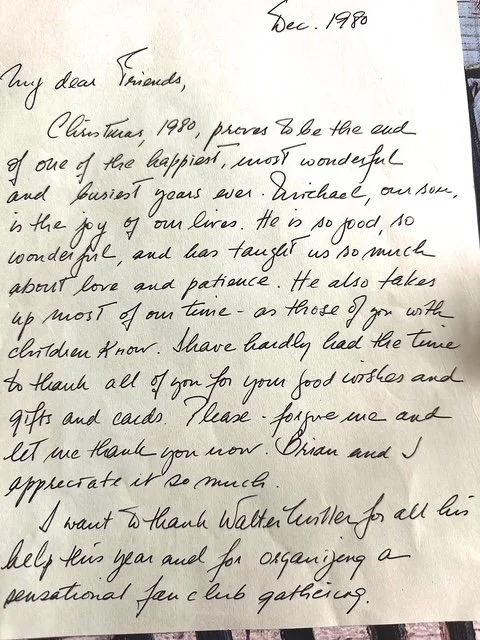 Dec. 1980
My dear Friends,
Christmas, 1980, proves to be the end
of one of the happiest, most wonderful
and busiest years ever. Michael, our son,
is the joy of our lives. He is so good, so
wonderful, and has taught us so much
about love and patience. He also takes
up most of our time - as those of you with
children know. I have hardly had the time
to thank all of you for your good wishes and
gifts and cards. Please - forgive me and
let me thank you now. Brian and I
appreciate it so much.
I want to thank Walter Miller for all his
help this year and for organizing a
sensational fan club gathering.